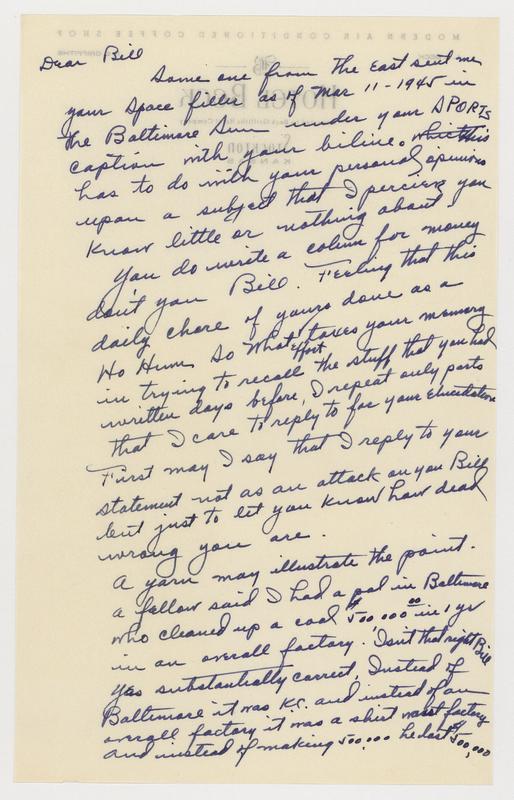 Dear Bill
Some one from the East sent me
your space filler as of Mar 11-1945 in
the Baltimore Sun under your SPORTS
caption with your biline. this
has to do with your personal opinions
upon a subject that I percieve you
know little or nothing about
You do write a column for money
don't you Bill. Feeling that this
daily chore of yours done as a
Ho Hum So What effort taxes your memory
in trying to recall the stuff that you had
written days before, I repeat only parts
that I care to reply to for your elucidation
First may I say that I reply to your
statement not as an attack on you Bill
but just to let you know how dead
wrong you are.
A yarn may illustrate the point.
a fellow said I had a pal in Baltimore
who cleaned up a cool $500,000.00 in 1 yr
in an overall factory. 'Isn't that right Bill
yes substantially correct, Instead of
Baltimore it was K.C. and instead of an
overall factory it was a shirt waist factory
and instead of making 500,000 he lost $500,000